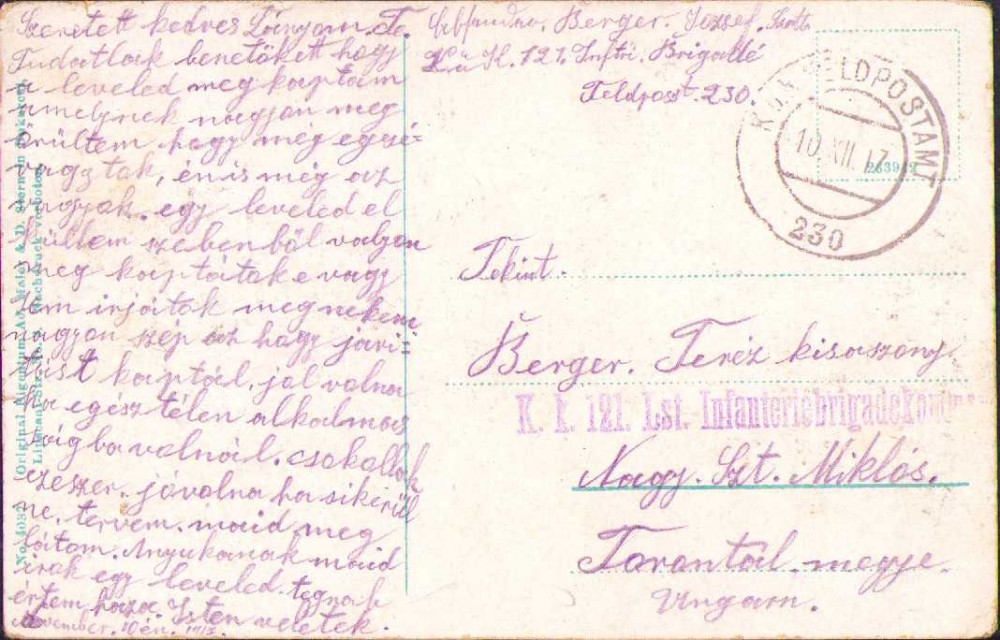 Szeretett kedves Lányom Te.
Tudatlak benetöket hogy
a leveled meg kaptam
amelynek nagyon meg
örültem hogy meg egési-
vagytok, én is még az
vagyok. egy leveled el
küldtem szebenböl valyon
meg kaptátok e vagy
nem irjátok meg nekem
nagyon szép az hogy javi-
tást kaptál. jol volna
ha egész télen alkalmas
ba volnál. csokollak
ezeszer. jóvolna ha sikerül
ne. tervem. maid meg
látom. Anyukanak maid
irok egy leveled. tegnab
értem haza. Isten veletek.
November. 10 én.
Berger. Jozsef.
K. u. K. 121. Inftr. Brigadé
Feldpost. 230.
K.u.K. FELDPOSTAMT
10. XII. 17
230
263942
Tekint.
Berger. Teréz kisaszony.
K. k. 121. Lst. Infanteriebrigadekom
Nagy. Szt. Miklós.
Torontál megye.
Ungarn.
No. 403
(Original Eigentum Ad. Maier & D. Stern
Nachdruck verboten.